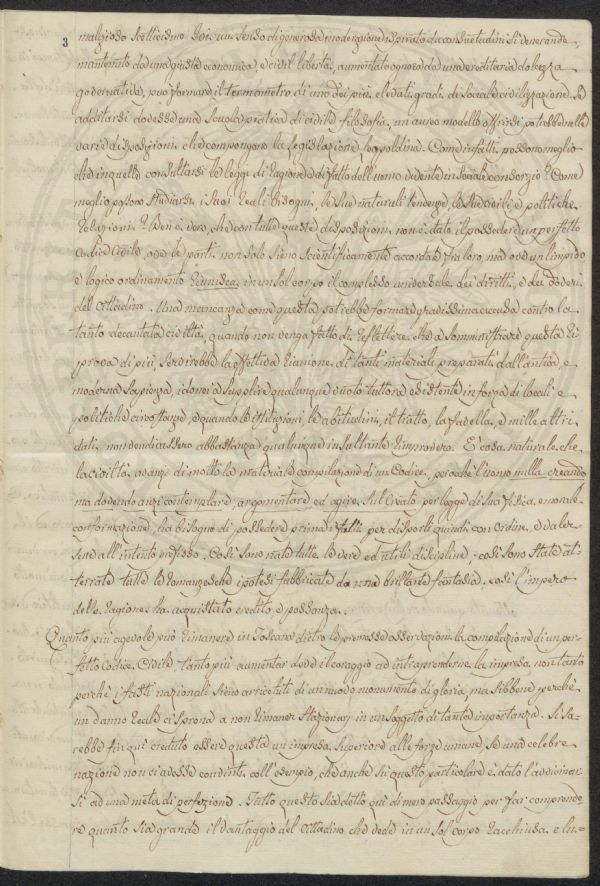 3
malgioso scetticismo. Dove un senso di generosa moderazione inspirato da consuetudini sì venerande
mantenuto da una giusta economica, e civil libertà, aumentato ognora da una ereditaria dolcezza
governativa, può formare il termometro di uno dei più elevati gradi di sociale civilizzazione. Se
additarsi dovesse una scuola pratica di civile filosofia, un aureo modello offrirsi potrebbe nelle
varie disposizioni che compongono la legislazione Leopoldina. Come infatti possono meglio
che in quella consultarsi le leggi di ragione e di fatto dell'uomo vivente in sociale consorzio? Come
meglio possono studiarsi i suoi reali bisogni, le sue naturali tendenze, le sue civili e politiche
relazioni? Ben è vero, che con tutte queste disposizioni non è dato il possedere un perfetto
Codice Civile, ove le parti non solo sieno scientificamente accordate fra loro, ma ove un limpido
e logico ordinamento riunisca, in un sol corpo il complesso universale dei diritti, e dei doveri
del Cittadino. Una mancanza come questa potrebbe formare gravissima accusa contro la
tanto decantata civiltà, quando non venga fatto di riflettere, che a somministrare questa ri
prova di più, servirebbe la effettiva riunione di tanti materiali preparati dall'antica e
moderna sapienza, idonei a supplire qualunque vuoto tuttora esistente in forza di locali e
politiche circostanze, e quando le istituzioni le abitudini, il tratto, la favella, e mille altri
dati non vendicassero abbastanza qualunque insultante rimprovero. È cosa naturale che
la civiltà avanzi di molto la materiale compilazione di un Codice, perochè l'uomo nulla creando
ma dovendo anzi contemplare, argomentare ed agire sul Creato per legge di sua fisica, e morale
conformazione, ha bisogno di possedere prima i fatti per disporli quindi con ordine, e valer
sene all'intento prefisso. Così sono nate tutte le vere ed utili discipline; così sono state at=
terrate tutte le romanzesche ipotesi fabbricate da una brillante fantasia; così l'impero
della ragione ha acquistato credito e possanza.
Quanto più agevole può rimanere in Toscana dietro le premesse osservazioni la compilazione di un per=
fetto Codice Civile tanto più aumentar deve il coraggio ad intraprenderne la impresa non tanto
perchè i fasti nazionali sieno arricchiti di un nuovo monumento di gloria, ma sibbene perchè
un danno reale ci sprona a non rimaner stazionarj in un soggetto di tanta importanza. Si sa=
rebbe fin qui creduto essere questa un'impresa superiore alle forze umane, se una celebre
nazione non ci avesse convinti coll'esempio, che anche su questo particolare è dato l'avvicinar
si ad una meta di perfezione. Tutto questo sia detto quì di mero passaggio per far comprende
re quanto sia grande il vantaggio del Cittadino che vede in un sol corpo racchiusa e lu=